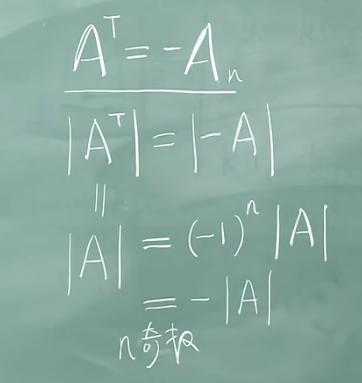 Aᵀ = -Aₙ
|Aᵀ| = |-A|
||
|A| = (-1)ⁿ |A|
= -|A|
n奇数